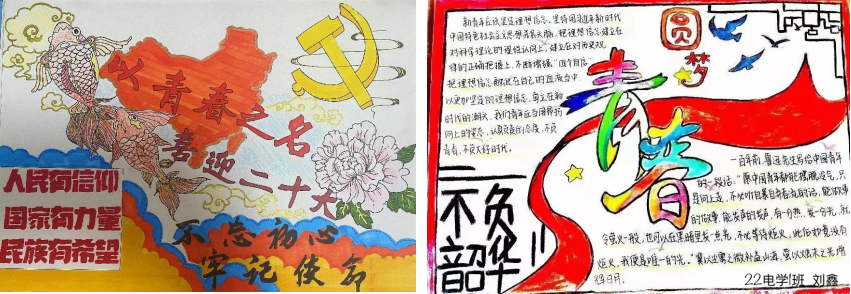 以青春之名
喜迎二十大
人民有信仰
国家有力量
民族有希望
不忘初心
牢记使命
新青年应该坚定理想信念,坚持用习近平新时代
中国特色社会主义思想武装头脑,把理想信念建立在
对科学理论的理性认同上,建立在对历史规
律的正确把握上,不断增强"四个自信"
把理想信念融化在自己的血液当中
以更加坚定的理想信念,立在新
时代的潮头,我们青年应当用昂扬
向上的姿态,认真负责的态度,不负
青春,不负大好时代。
圆梦
青春
不负
韶华
一百年前,鲁迅先生写给中国青年
的一段话:"愿中国青年都能摆脱冷气,只
是向上走,不必听自暴自弃者流的话,能做事
的做事,能发声的发声,有一分热,发一分光,就
令萤火一般,也可以在黑暗里发一点光,不必等待炬火,此后如竟没有
炬火,我便是唯一的光。"冀以尘雾之微补益山海,萤以烛末之光增
辉日月。
22电学1班 刘鑫